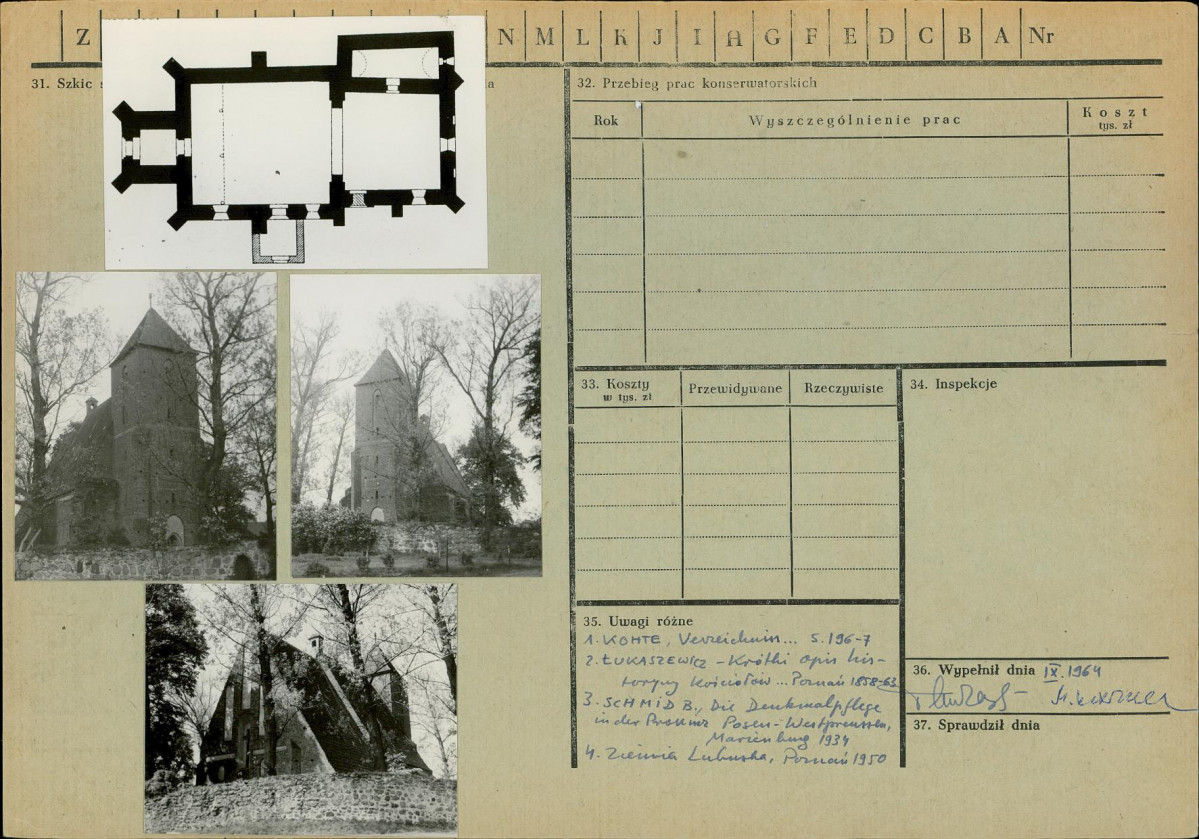 Z N M L K J I H G F E D C B A Nr
31. Szkic
32. Przebieg prac konserwatorskich
Rok
Wyszczególnienie prac
Koszt
tys. zł
33. Koszty
w tys. zł
Przewidywane
Rzeczywiste
34. Inspekcje
35. Uwagi różne
1. KOHTE, Verzeichnis... S. 196-7
2. ŁUKASZEWICZ - Krótki opis his-
toryny Kościołów... Poznań 1858-63
3. SCHMID B., Die Denkmalpflege
in der Provinz Posen-Westpreussen,
Marienburg 1934
4. Ziemia Lubuska, Poznań 1950
36. Wypełnił dnia IX.1964
37. Sprawdził dnia